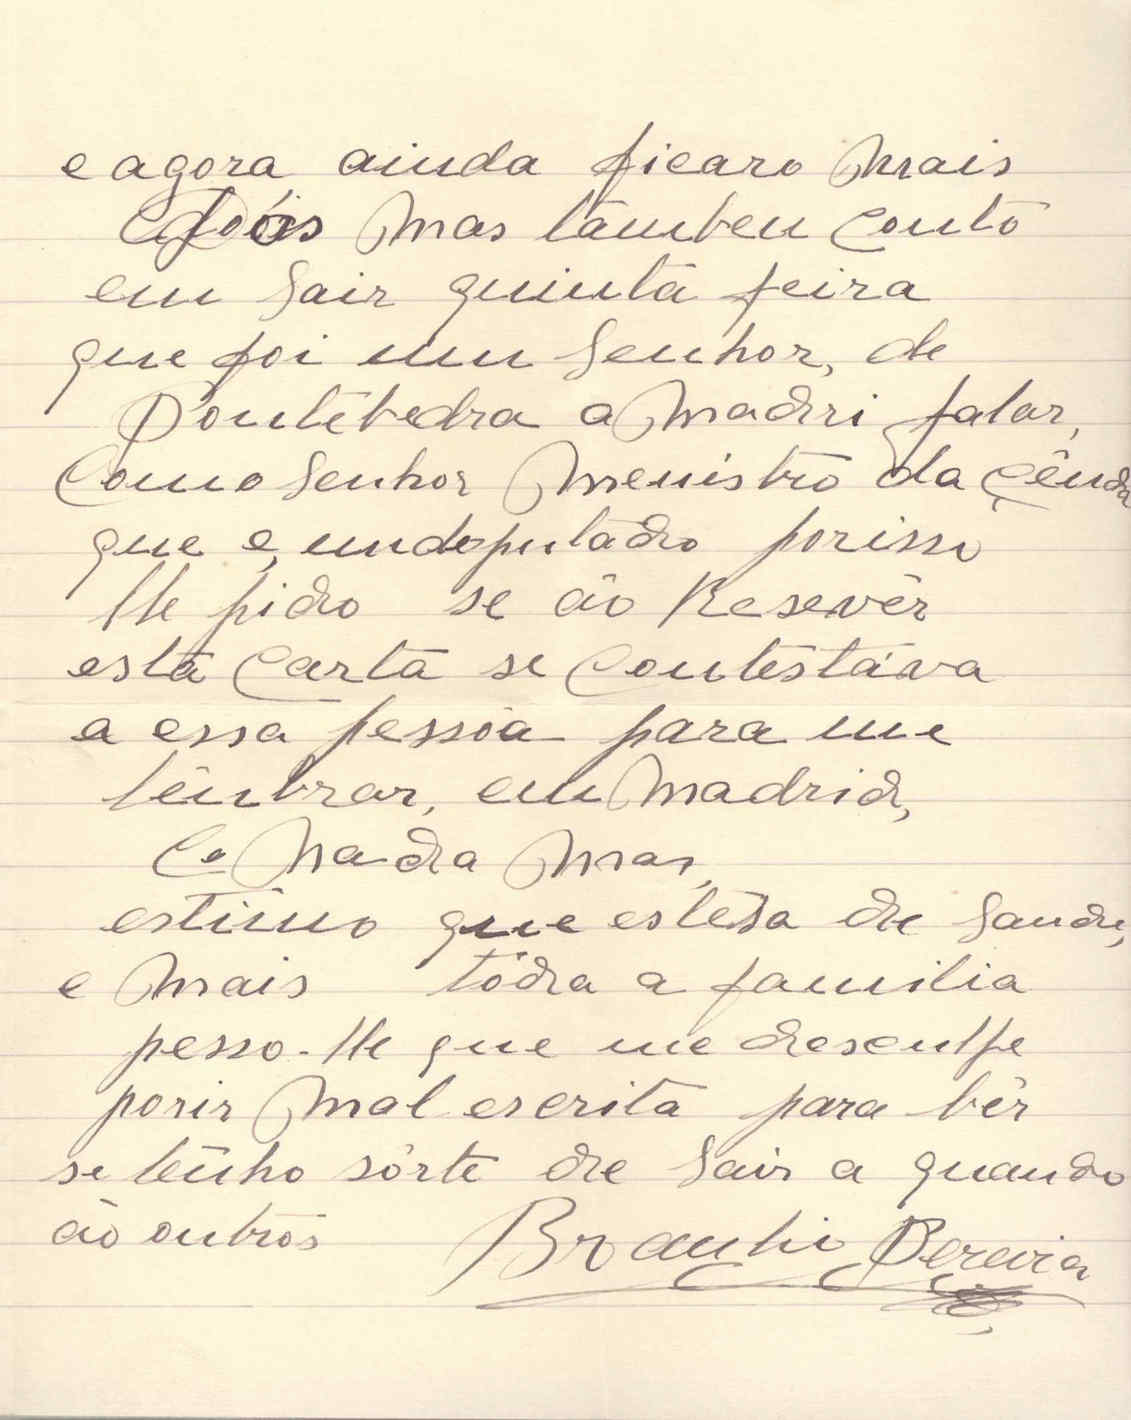 e agora ainda ficaro mais
dois mas tâmben conto
em sair quinta feira
que foi um senhor, de
Pontebedra a madrri falar,
como senhor menistro da
que e undeputadro porisso
lle pidro se ao Resevêr
está carta se contestáva
a essa pessoa para me
lênbrar, em madrid,
e nadra mas,
estimo que esteza dre saudre,
e mais tódra a familia
pesso-lle que me dresculpe
porir mal escrita para bêr
se tênho sórte dre sair a quandro
áo outros Braulio Pereira